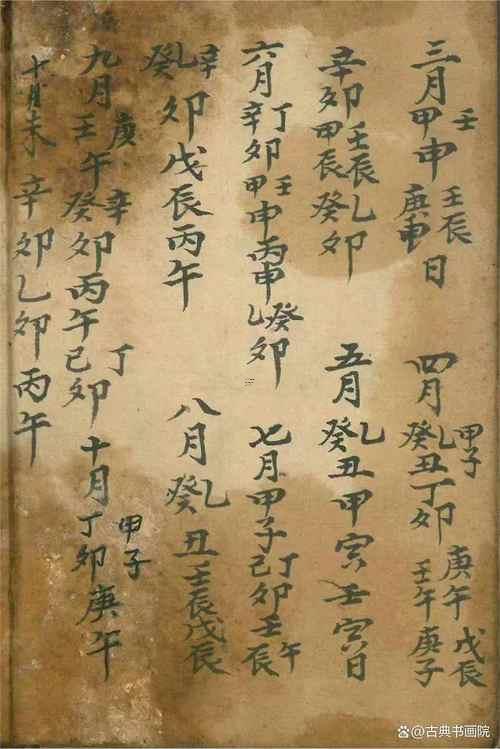 三月甲壬申庚申壬辰日
四月癸乙丑甲子丁卯壬午庚午庚子戊辰
辛卯甲辰壬辰乙癸卯
五月癸乙丑甲寅壬寅日
六月辛丁卯甲壬申丙申乙癸卯
七月甲子己丁卯壬午辰
癸乙辛卯戊辰丙午
八月癸乙丑壬辰戊辰
九月壬庚午癸辛卯丙午己丁卯十月丁卯甲子庚午
十月未辛卯乙卯丙午
@古典书画院